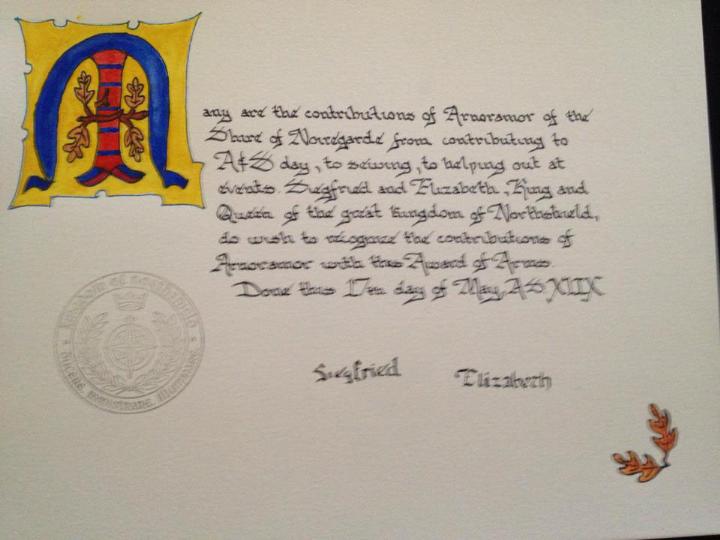 Many are the contributions of Arnoramor of the
Shire of Noiregarde from contributing to
A&S day, to sewing, to helping out at
events. Siegfried and Elizabeth, King and
Queen of the great Kingdom of Northshield,
do wish to recognize the contributions of
Arnoramor with this Award of Arms.
Done this 17th day of May, AS XLIX
Siegfried Elizabeth
Kingdom of Northshield